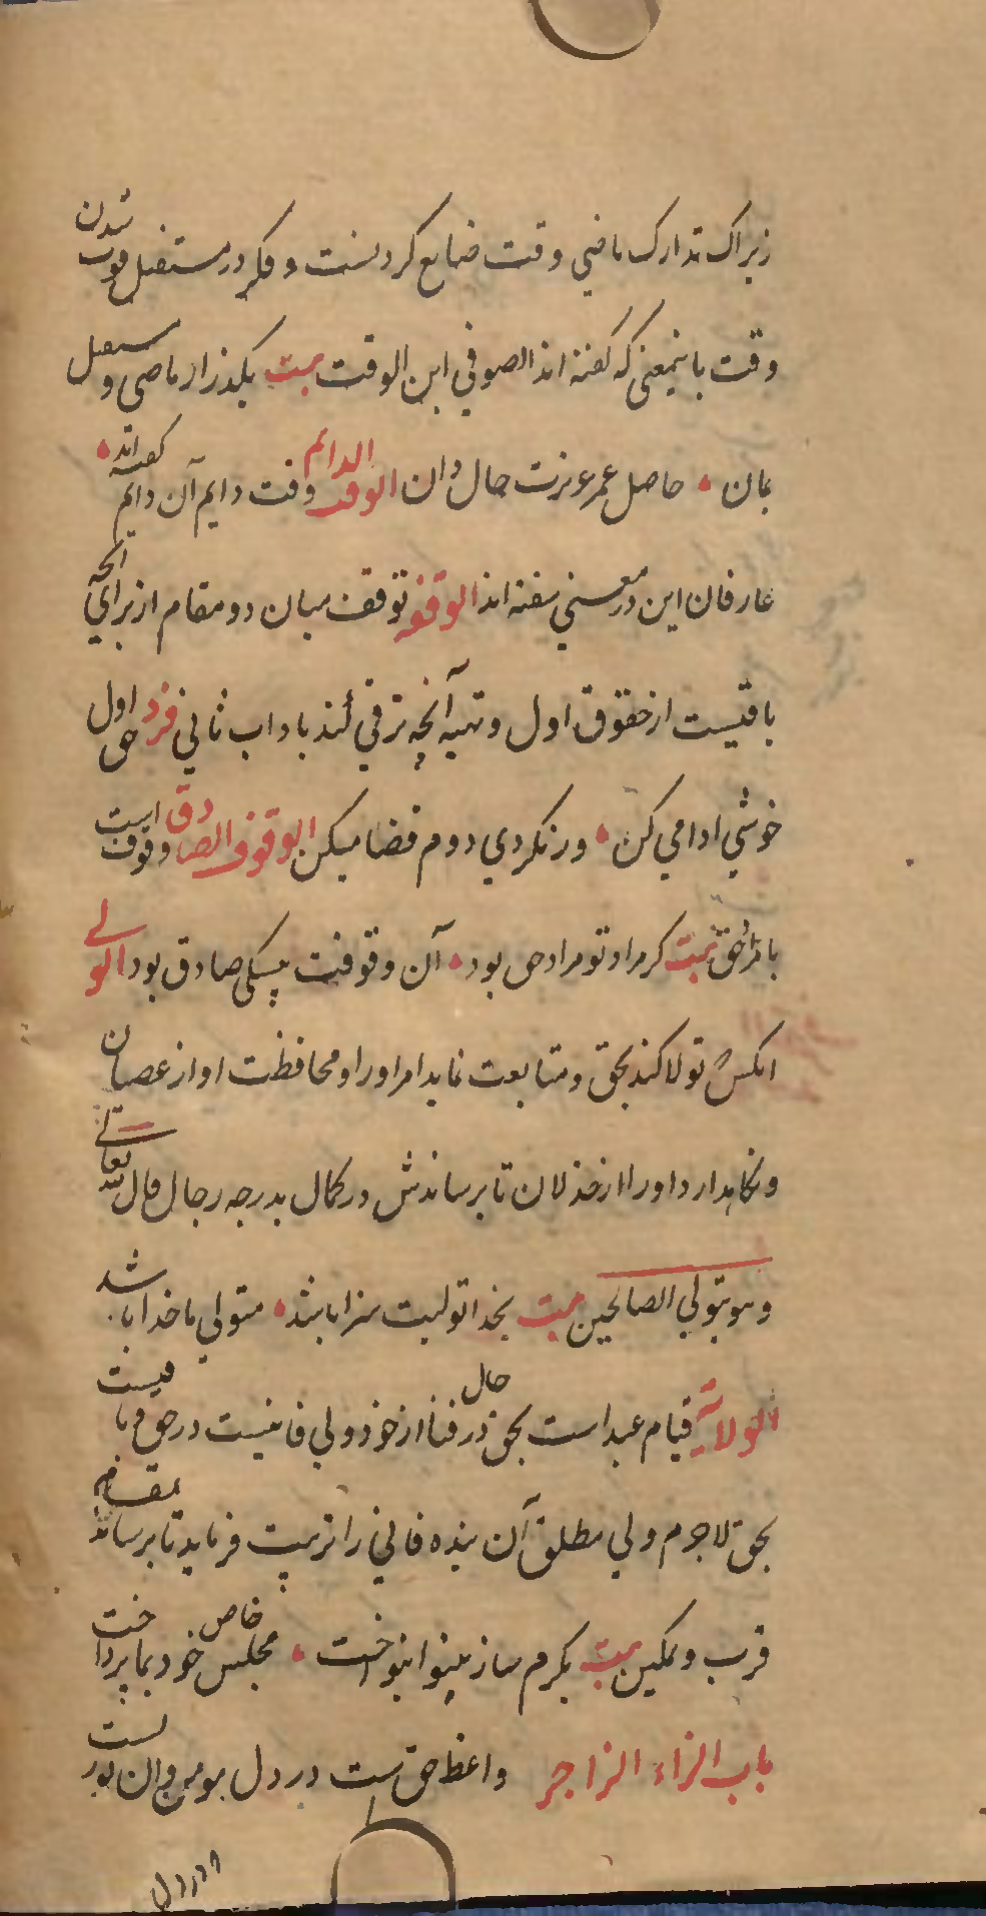 زیراک تدارک ماضی وقت ضایع کردنست و فکر در مستقبل فوت شدن
وقت باینمعنی که گفته اند الصوفی ابن الوقت بیت بگذر از ماضی و مستقبل
بمان ، حاصل عمر عزیزت حال دان الوقت الدایم وقت دایم آن دایم گفته اند ،
عارفان این در معنی سفته اند الوقفه توقف میان دو مقام از برای آنچه
باقیست از حقوق اول و تهیه آنچه ترقی کند باداب ثانی فرد حق اول
خوشی ادا می کن ، ور نکردی دوم قضا میکن الوقوف الصادق وقوف است
بامر حق بیت گر مراد تو مراد حق بود ، آن وقوفت بیشکی صادق بود الولی
انکس تولا کند بحق و متابعت نماید امر او را و محافظت او از عصیان
و نگاهدارد او را از خذلان تا برساندش در کمال بدرجه رجال قال الله تعالی
و هو یتولی الصالحین بیت بخدا تولیت سزا باشد ، متولی ما خدا باشد
الولایة قیام عبد است بحق در حال فنا از خود ولی فانیست در حق و باقیست
بحق لاجرم ولی مطلق آن بنده فانی را تربیت فرماید تا برساند بمقام
قرب و تمکین بیت بکرم ساز بینوا بنواخت ، مجلس خاص خود بما پرداخت
باب الزاء الزاجر واعظ حق است در دل مومن و ان نور یست
در دل